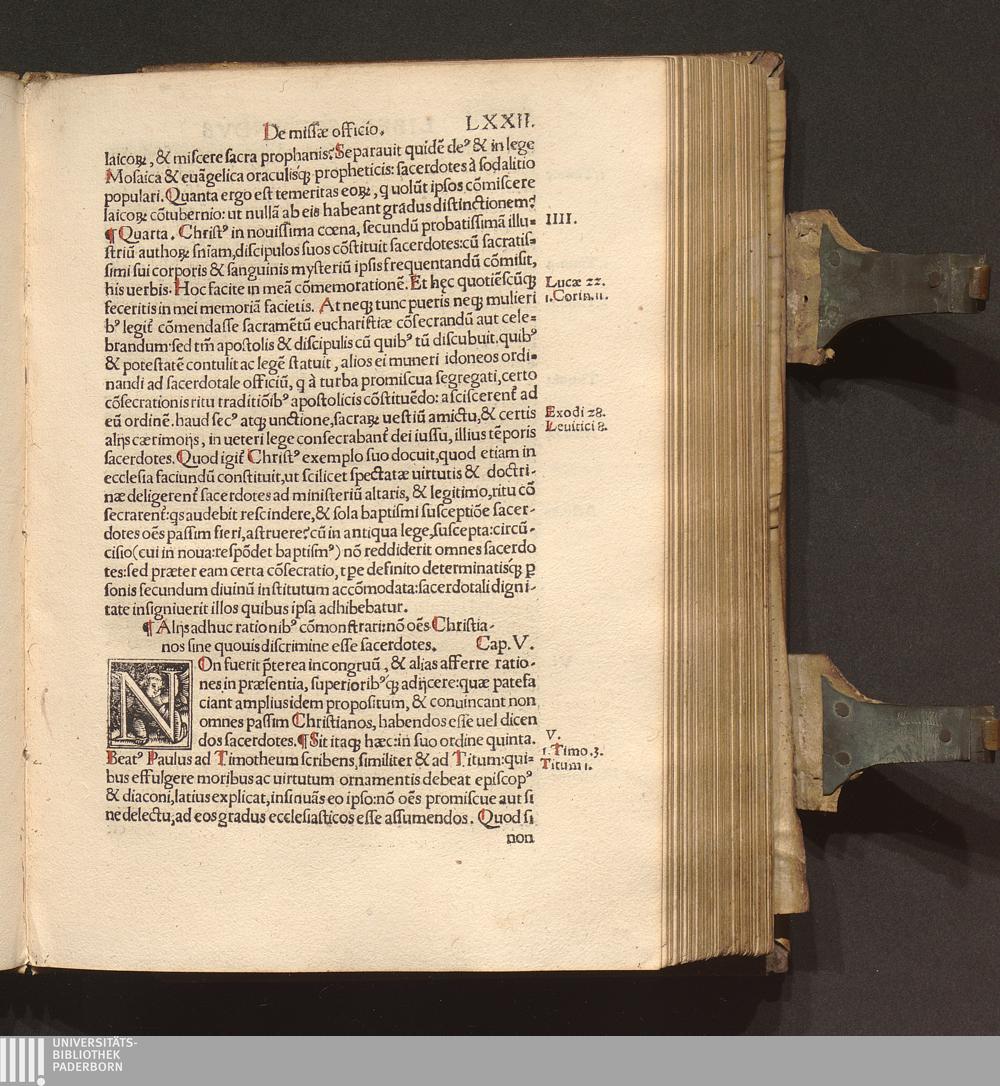 De missæ officio. LXXII.
laicoꝝ, & miscere sacra prophanis? Separauit quidē deꝰ & in lege
Mosaica & euāgelica oraculisqꝫ propheticis: sacerdotes à sodalitio
populari. Quanta ergo est temeritas eoꝝ, q uolūt ipsos cōmiscere
laicoꝝ cōtubernio: ut nullā ab eis habeant gradus distinctionem?
¶ Quarta. Christꝰ in nouissima cœna, secundū probatissimā illu-
striū authoꝝ sniam, discipulos suos cōstituit sacerdotes: cū sacratis-
simi sui corporis & sanguinis mysteriū ipsis frequentandū cōmisit,
his uerbis. Hoc facite in meā cōmemorationē. Et hęc quotiēscūqꝫ
feceritis in mei memoriā facietis. At neqꝫ tunc pueris neqꝫ mulieri
bꝰ legit̃ cōmendasse sacramētū eucharistiæ cōsecrandū aut cele-
brandum: sed tm̄ apostolis & discipulis cū quibꝰ tū discubuit. quibꝰ
& potestatē contulit ac legē statuit, alios ei muneri idoneos ordi-
nandi ad sacerdotale officiū, q à turba promiscua segregati, certo
cōsecrationis ritu traditiōibꝰ apostolicis cōstituēdo: asciscerent̃ ad
eū ordinē. haud secꝰ atqꝫ unctione, sacraꝝ uestiū amictu, & certis
alijs cærimonijs, in ueteri lege consecrabant̃ dei iussu, illius tēporis
sacerdotes. Quod igit̃ Christꝰ exemplo suo docuit, quod etiam in
ecclesia faciundū constituit, ut scilicet spectatæ uirtutis & doctri-
næ deligerent̃ sacerdotes ad ministeriū altaris, & legitimo, ritu cō
secrarent̃: qs audebit rescindere, & sola baptismi susceptiōe sacer-
dotes oēs passim fieri, astruere? cū in antiqua lege, suscepta: circū-
cisio (cui in noua: respōdet baptismꝰ) nō reddiderit omnes sacerdo
tes: sed præter eam certa cōsecratio, tꝑe definito determinatisqꝫ ꝑ
sonis secundum diuinū institutum accōmodata: sacerdotali digni-
tate insigniuerit illos quibus ipsa adhibebatur.
¶ Alijs adhuc rationibꝰ cōmonstrari: nō oēs Christia-
nos sine quouis discrimine esse sacerdotes. Cap. V.
NOn fuerit p̄terea incongruū, & alias afferre ratio-
nes in præsentia, superioribꝰqꝫ adijcere: quæ patefa
ciant amplius idem propositum, & conuincant non
omnes passim Christianos, habendos esse uel dicen
dos sacerdotes. ¶ Sit itaqꝫ hæc: in suo ordine quinta.
Beatꝰ Paulus ad Timotheum scribens, similiter & ad Titum: qui-
bus effulgere moribus ac uirtutum ornamentis debeat episcopꝰ
& diaconi, latius explicat, insinuās eo ipso: nō oēs promiscue aut si
ne delectu, ad eos gradus ecclesiasticos esse assumendos. Quod si
non
IIII.
Lucæ 22.
1. Corin. 11.
Exodi 28.
Leuitici 8.
V.
1. Timo. 3.
Titum 1.
UNIVERSITÄTS-
BIBLIOTHEK
PADERBORN